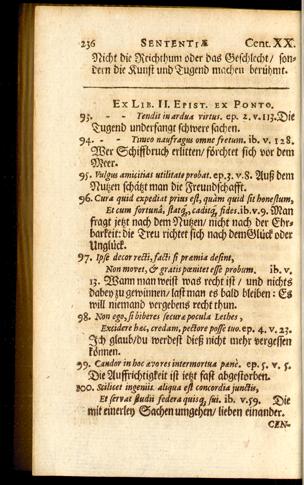 236 SENTENTIÆ Cent. XX.
Nicht die Reichthum oder das Geschlecht/ son-
dern die Kunst und Tugend machen berühmt.
EX LIB. II. EPIST. EX PONTO.
93. - - Tendit in ardua virtus. ep. 2. v. 113. Die
Tugend underfangt schwere sachen.
94. - - Timeo naufragus omne fretum. ib. v. 128.
Wer Schiffbruch erlitten/ förchtet sich vor dem
Meer.
95. Vulgus amicitias utilitate probat. ep. 3. v. 8. Auß dem
Nutzen schätzt man die Freundschafft.
96. Cura quid expediat prius est, quàm quid sit honestum,
Et cum fortunâ, statq́, caditq́, fides. ib. v. 9. Man
fragt jetzt nach dem Nutzen/ nicht nach der Ehr-
barkeit: die Treu richtet sich nach dem Glück oder
Unglück.
97. Ipse decor recti, facti si præmia desint,
Non movet, & gratis pœnitet esse probum. ib. v.
13. Wann man weist was recht ist / und nichts
dabey zu gewinnen/ last man es bald bleiben: Es
will niemand vergebens recht thun.
98. Non ego, si biberes securæ pocula Lethes,
Excidere hæc, credam, pectore posse tuo. ep. 4. v. 23.
Ich glaub/ du werdest dieß nicht mehr vergessen
können.
99. Candor in hoc ævo res intermortua panè. ep. 5. v. 5.
Die Auffrichtigkeit ist jetzt fast abgestorben.
100. Scilicet ingeniis aliqua est concordia junctis,
Et servat studii federa quisq, sui. ib. v. 59. Die
mit einerley Sachen umgehen/ lieben einander.
CEN-